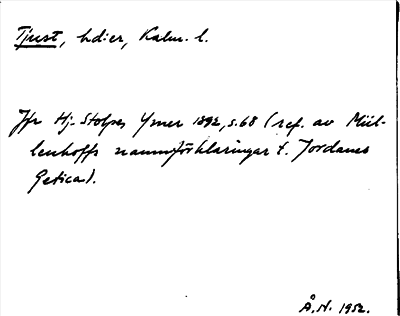 Tjust, hd:er, Kalm. l.
Jfr Hj. Stolpes Ymer 1892, s. 68 (ref. av Mül-
lenhoffs namnförklaringar t. Jordanes
Getica).
Å.N. 1952.